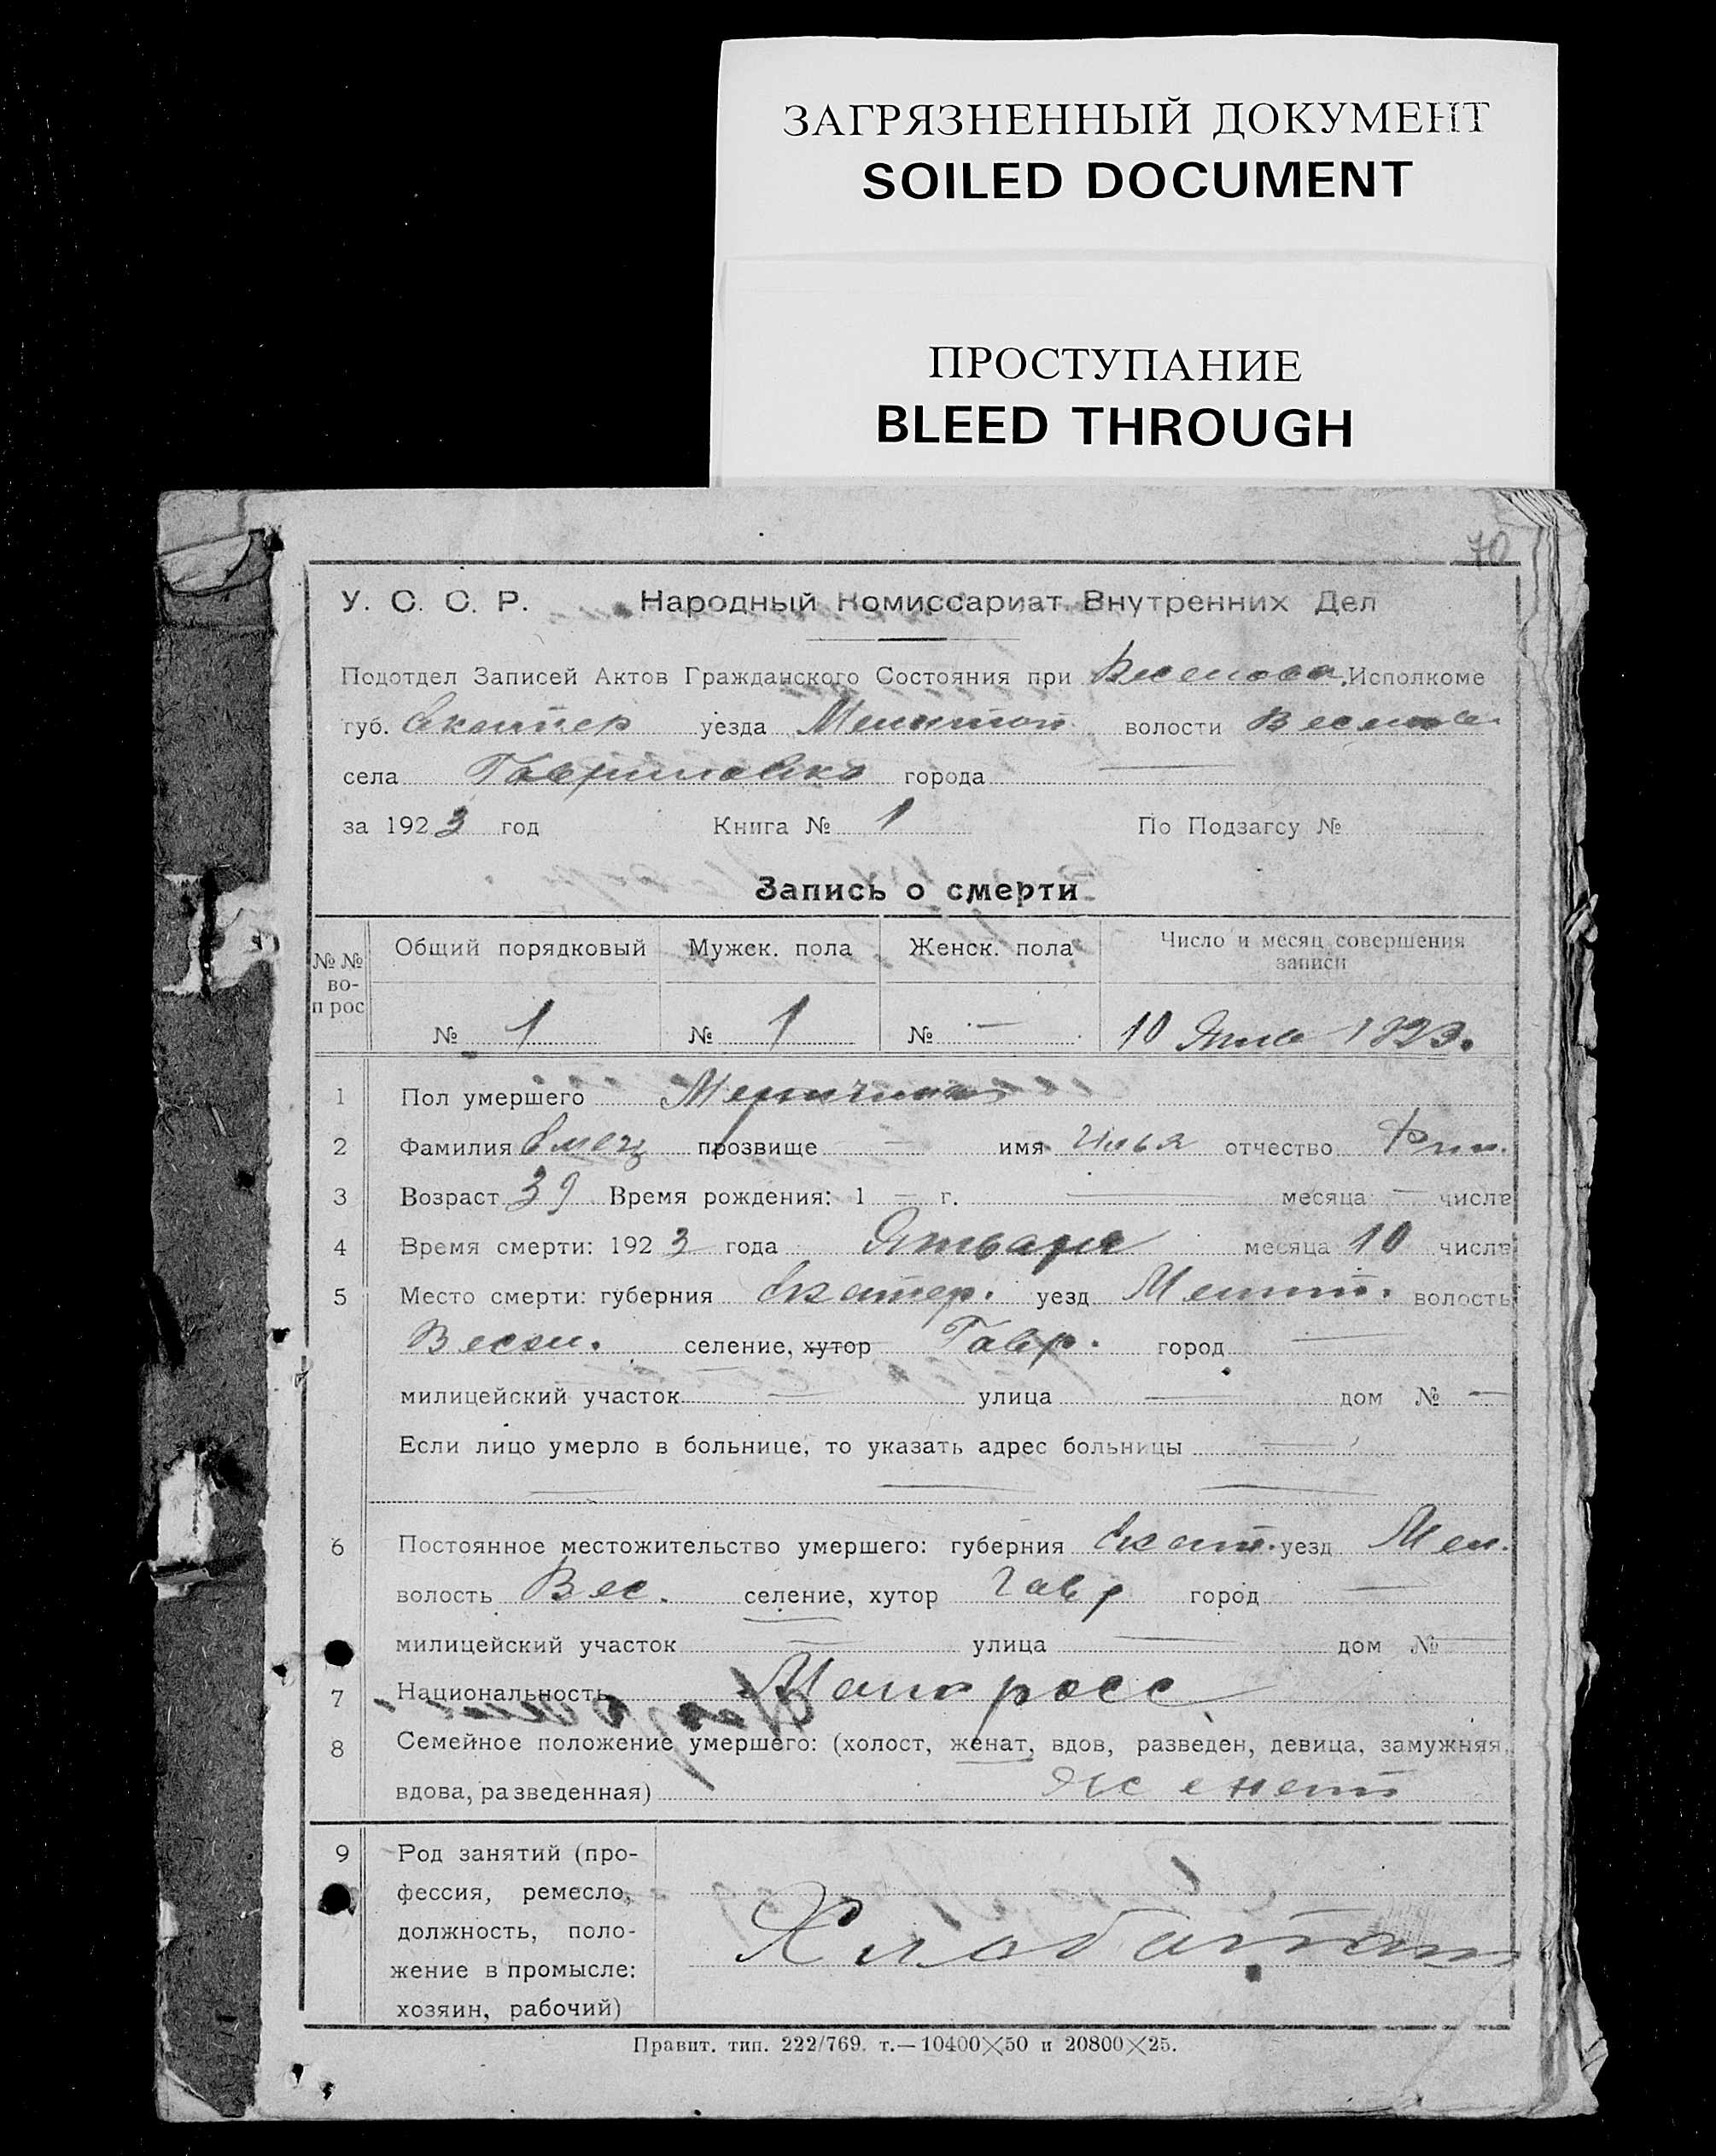 ЗАГРЯЗНЕННЫЙ ДОКУМЕНТ
SOILED DOCUMENT
ПРОСТУПАНИЕ
BLEED THROUGH
70
У. С. С. Р. Народный Комиссариат Внутренних Дел
Подотдел Записей Актов Гражданского Состояния при Исполкоме
губ. Екатер уезда Мелитоп волости
села Гавриловка города —
за 1923 год Книга № 1 По Подзагсу №
Запись о смерти
№ № во- п рос Общий порядковый Мужск. пола Женск. пола Число и месяц совершения записи
№ 1 № 1 № — 10 Янв 1923.
1 Пол умершего Мужчина
2 Фамилия прозвище — имя Илья отчество
3 Возраст 39 Время рождения: 1 — г. — месяца — числа
4 Время смерти: 1923 года Января месяца 10 числа
5 Место смерти: губерния Екатер. уезд Мелит. волость
Весел. селение, хутор Гавр. город —
милицейский участок — улица — дом № —
Если лицо умерло в больнице, то указать адрес больницы —
— — —
6 Постоянное местожительство умершего: губерния Екат. уезд Мел.
волость Вес. селение, хутор Гавр город —
милицейский участок — улица — дом № —
7 Национальность Малоросс
8 Семейное положение умершего: (холост, женат, вдов, разведен, девица, замужняя,
вдова, разведенная) Женат
9 Род занятий (про-
фессия, ремесло,
должность, поло-
жение в промысле:
хозяин, рабочий)
Правит. тип. 222/769. т.—10400×50 и 20800×25.